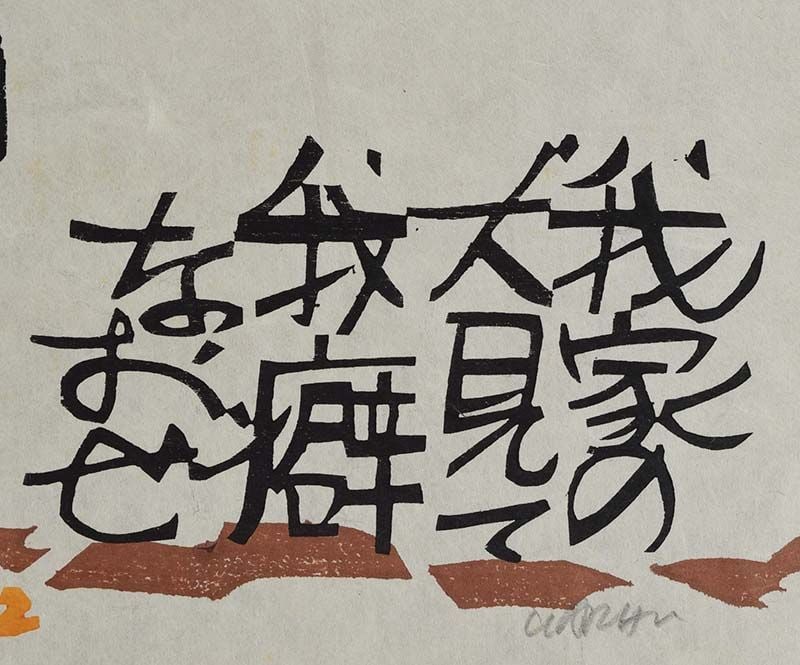 我家の
犬見て
我癖
なおせ